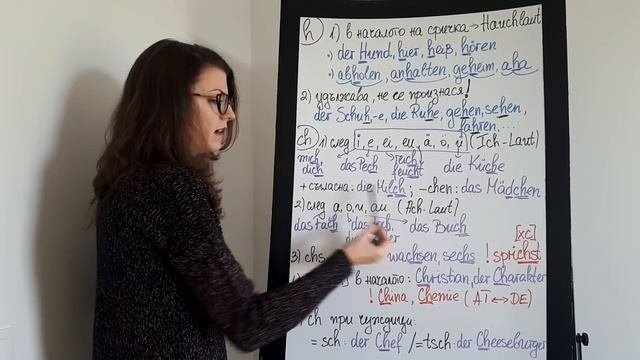 h 1) в началото на сричка → Hauchlaut
•) der Hund, hier, heiß, hören
•) abholen, anhalten, geheim, aha
2) удължава, не се произнася!
der Schuh,-e, die Ruhe, gehen, sehen,
fahren, ...
ch 1) след i, e, ei, eu, ä, ö, ü (Ich-Laut)
mich, dich das Pech reich, feucht die Küche
+ съгласна: die Milch; -chen: das Mädchen
2) след a, o, u, au (Ach-Laut)
das Fach das das Buch
3) chs wachsen, sechs ! sprichst [хс]
в началото: Christian, der Charakter
! China, Chemie (AT ↔ DE)
ch при чуждици:
= sch: der Chef /= tsch: der Cheeseburger